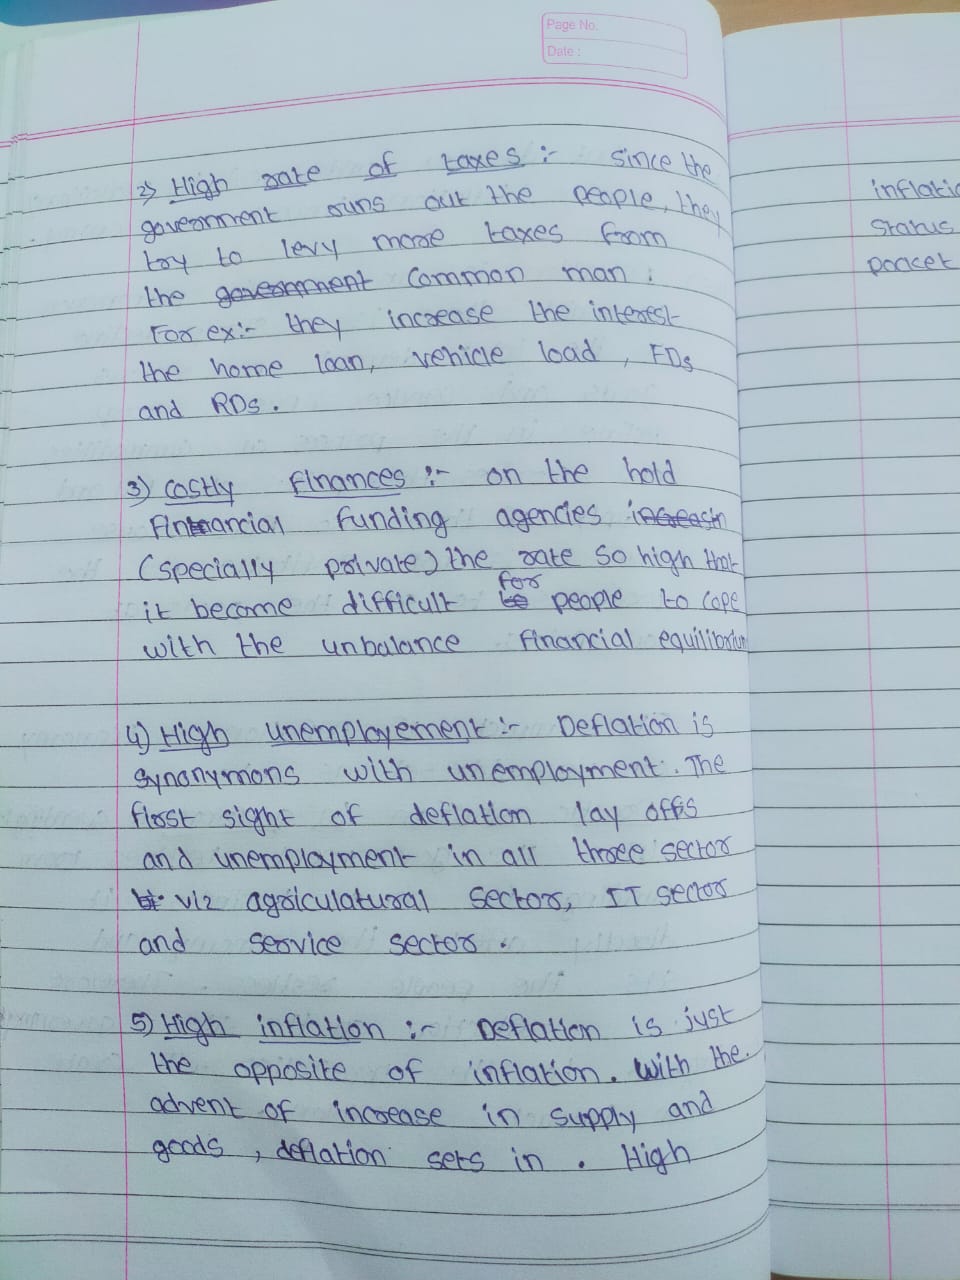 Page No.
Date :
2) High rate of taxes :- since the
government runs out the people, they
try to levy more taxes from
the government common man.
For ex:- they increase the interest
the home loan, vehicle load, FDs
and RDs.
3) Costly finances :- on the hold
Finanarcial funding agencies increasin
(specially private) the rate so high that
for
it become difficult to people to cope
with the unbalance financial equilibrium
4) High unemployement :- Deflation is
synonymons with unemployment. The
first sight of deflation lay offs
and unemployment in all three sector
viz agriculatural sector, IT sector
and service sector.
5) High inflation :- Deflation is just
the opposite of inflation. With the
advent of increase in supply and
goods, deflation sets in. High
inflatio
Status
poncet